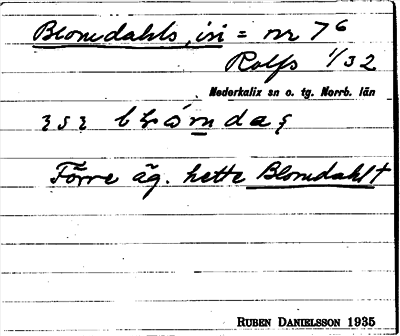 Blomdahls, in = nr 7⁶
Rolfs 1/32
Nederkalix sn o. tg. Norrb. län
Förre äg. hette Blomdahl †
RUBEN DANIELSSON 1935